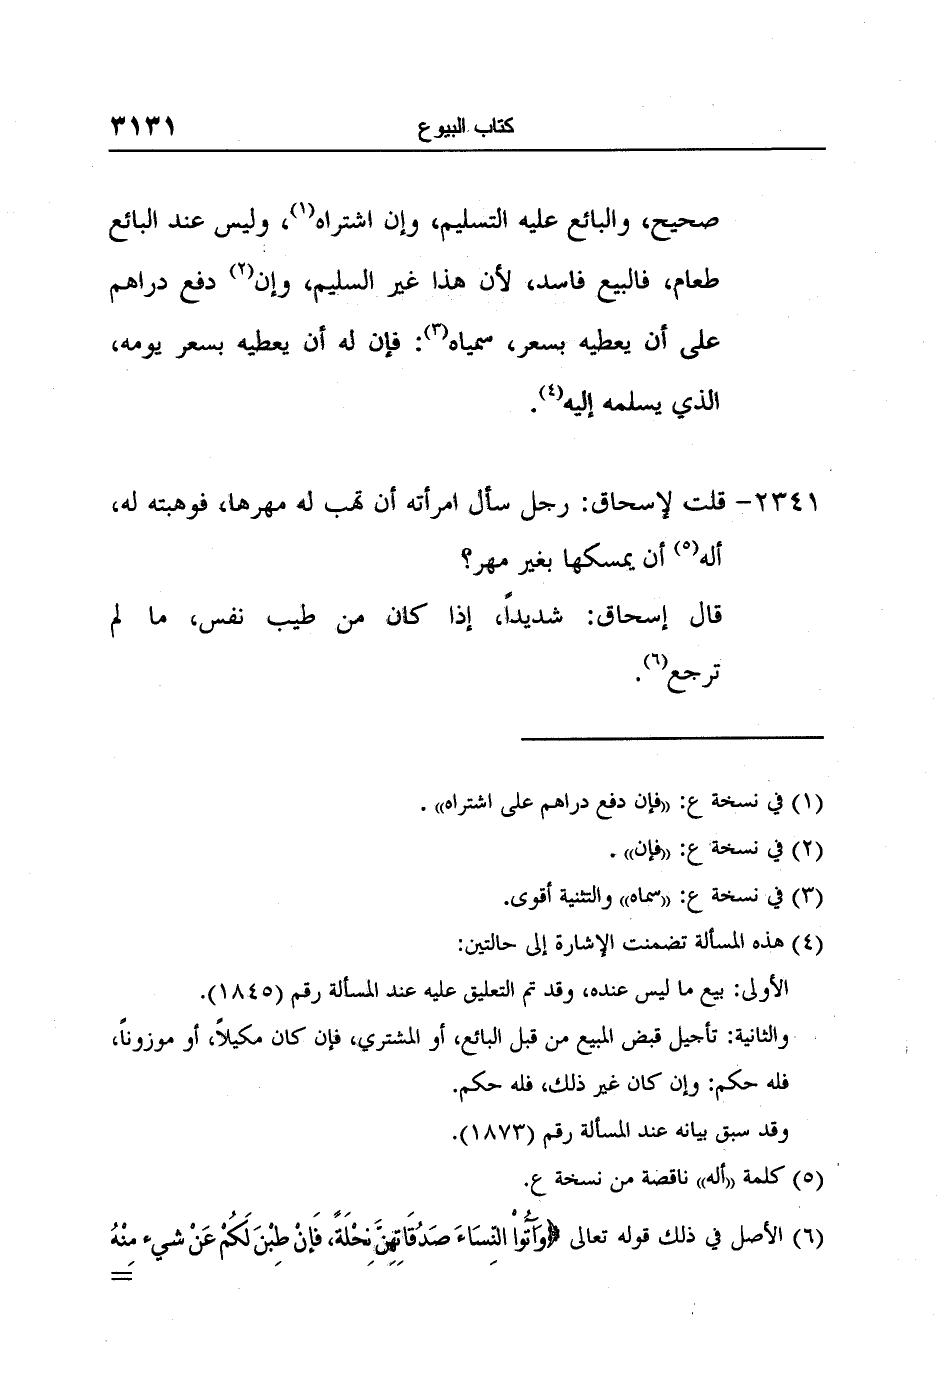 كتاب البيوع ٣١٣١
صحيح، والبائع عليه التسليم، وإن اشتراه(١)، وليس عند البائع
طعام، فالبيع فاسد، لأن هذا غير السليم، وإن(٢) دفع دراهم
على أن يعطيه بسعر، سمياه(٣): فإن له أن يعطيه بسعر يومه،
الذي يسلمه إليه(٤).
٢٣٤١- قلت لإسحاق: رجل سأل امرأته أن تهب له مهرها، فوهبته له،
أله(٥) أن يمسكها بغير مهر؟
قال إسحاق: شديداً، إذا كان من طيب نفس، ما لم
ترجع(٦).
(١) في نسخة ع: «فإن دفع دراهم على اشتراه».
(٢) في نسخة ع: «فإن».
(٣) في نسخة ع: «سماه» والتثنية أقوى.
(٤) هذه المسألة تضمنت الإشارة إلى حالتين:
الأولى: بيع ما ليس عنده، وقد تم التعليق عليه عند المسألة رقم (١٨٤٥).
والثانية: تأجيل قبض المبيع من قبل البائع، أو المشتري، فإن كان مكيلاً، أو موزوناً،
فله حكم: وإن كان غير ذلك، فله حكم.
وقد سبق بيانه عند المسألة رقم (١٨٧٣).
(٥) كلمة «أله» ناقصة من نسخة ع.
(٦) الأصل في ذلك قوله تعالى ﴿وَآتُواْ النِّسَاءَ صَدُقَاتِهِنَّ نِحْلَةً، فَإِنْ طِبْنَ لَكُمْ عَنْ شيء مِنْهُ
=